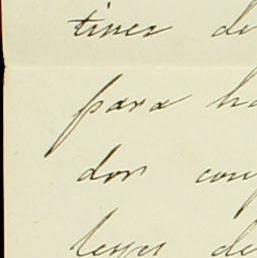 tines de
para ha
dor con
leyes de